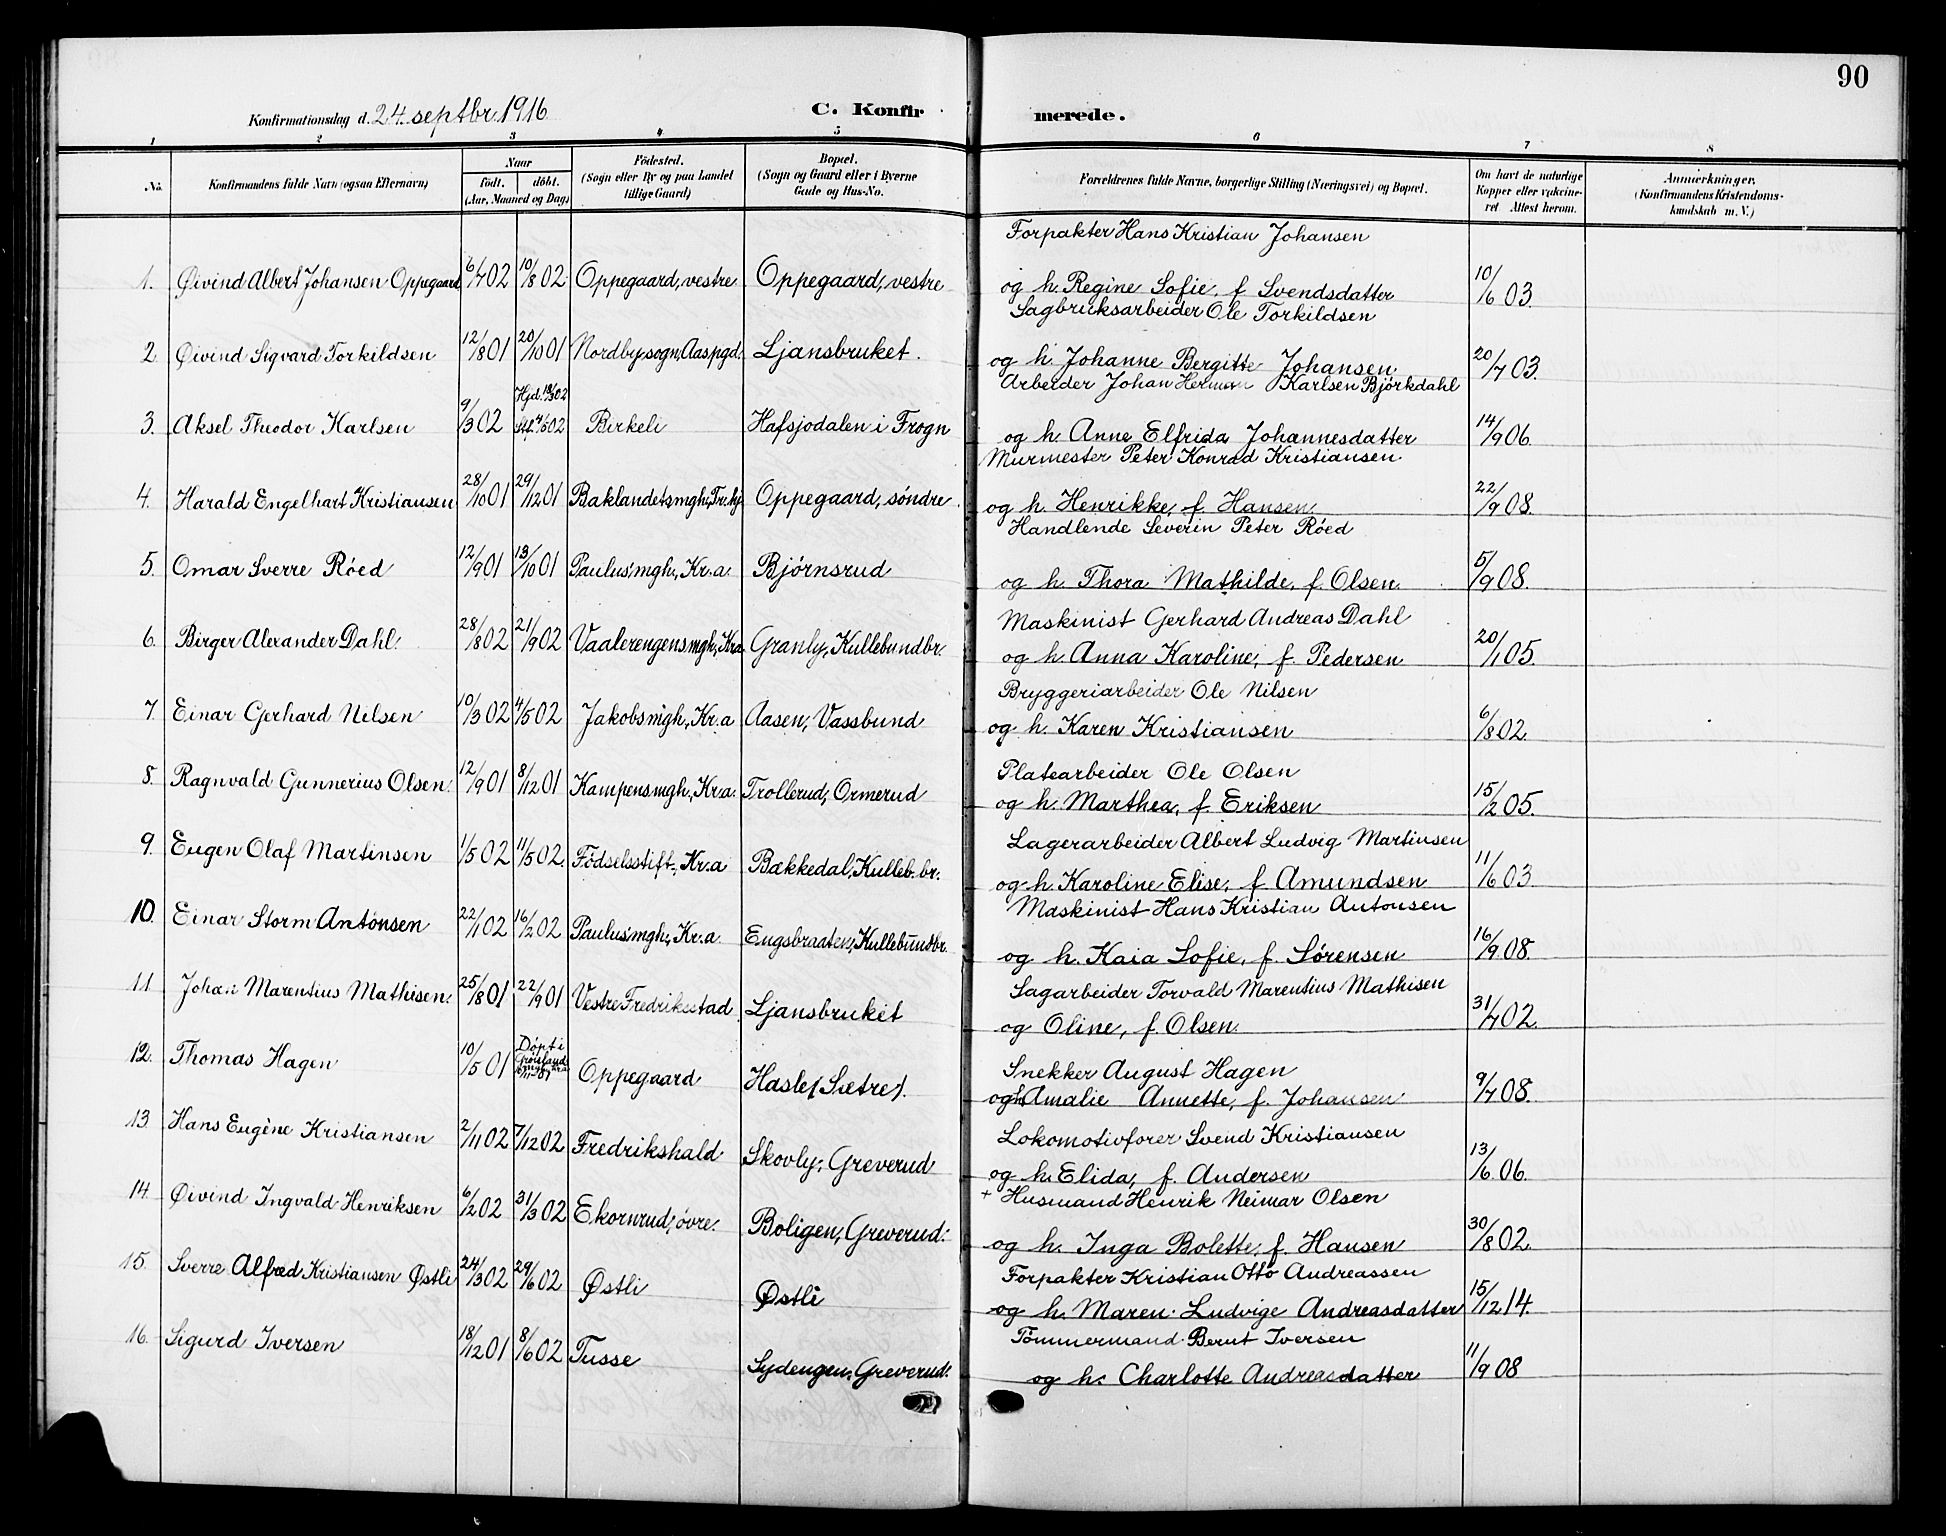 90
Konfirmationsdag d. 24. septbr. 1916
C. Konfirmerede.
1 2 3 4 5 6 7 8
No.
Konfirmandens fulde Navn (ogsaa Efternavn)
Naar
født. døbt.
(Aar, Maaned og Dag)
Födested.
(Sogn eller By og paa Landet tillige Gaard)
Bopæl.
(Sogn og Gaard eller i Byerne Gade og Hus-No.
Forældrenes fulde Navne, borgerlige Stilling (Næringsvei) og Bopæl.
Om havt de naturlige Kopper eller vakcineret Attest herom.
Anmærkninger,
(Konfirmandens Kristendomskundskab m. V.)
Forpakter Hans Kristian Johansen
1. Øivind Albert Johansen Oppegaard 6/7 02 10/8 02 Oppegaard, vestre Oppegaard, vestre og h. Regine Sofie, f. Svendsdatter 10/6 03.
Sagbruksarbeider Ole Torkildsen
2. Øivind Sigvard Torkildsen 12/8 01 20/10 01 Nordby sogn, Aas pgd. Ljansbruket. og h. Johanne Bergitte Johansen 20/7 03.
Arbeider Johan Herman Karlsen Björkdahl
3. Aksel Theodor Karlsen 9/3 02 Hjd. 13/3 02 Birkeli Hafsjodalen i Frogn og h. Anne Elfrida Johannesdatter 14/9 06.
Murmester Peter Konrad Kristiansen
4. Harald Engelhart Kristiansen 28/10 01 29/12 01 Baklandets mgh., Tr.hj. Oppegaard, söndre. og h. Henrikke, f. Hansen 22/9 08.
Handlende Severin Peter Röed
5. Omar Sverre Röed 12/9 01 13/10 01 Paulus' mgh., Kr.a. Bjørnsrud og h. Thora Mathilde, f. Olsen 5/9 08.
Maskinist Gerhard Andreas Dahl
6. Birger Alexander Dahl. 28/8 02 21/9 02 Vaalerengens mgh., Kr.a Granly, Kullebundbr. og h. Anna Karoline, f. Pedersen 20/1 05.
Bryggeriarbeider Ole Nilsen
7. Einar Gerhard Nilsen 10/3 02 4/5 02 Jakobs mgh., Kr.a Aasen, Vassbund og h. Karen Kristiansen 6/8 02.
Platearbeider Ole Olsen
8. Ragnvald Gunnerius Olsen. 12/9 01 8/12 01 Kampens mgh., Kr.a. Trollerud, Ormerud og h. Marthea, f. Eriksen 15/2 05.
Lagerarbeider Albert Ludvig Martinsen
9. Eugen Olaf Martinsen 1/5 02 11/5 02. Födselsstift., Kr.a Bækkedal, Kulleb. br. og h. Karoline Elise, f Amundsen 11/6 03
Maskinist Hans Kristian Antonsen
10. Einar Storm Antonsen 22/1 02 16/2 02 Paulus' mgh., Kr.a. Engsbraaten, Kullebundbr. og h. Kaia Sofie, f. Sörensen 16/9 08.
Sagarbeider Torvald Marentius Mathisen
11 Johan Marentius Mathisen. 25/8 01 22/9 01 Vestre Fredrikstad Ljansbruket og Oline, f. Olsen. 31/7 02.
Snekker August Hagen
12. Thomas Hagen 10/5 01 Döpt i Grönland Oppegaard Hasle (Sætre). og h. Amalie Annette, f. Johansen 9/7 08.
Lokomotivforer Svend Kristiansen
13. Hans Eugène Kristiansen 2/11 02 7/12 02 Fredrikshald Skovly, Greverud og h. Elida, f. Andersen 13/6 06.
+ Husmand Henrik Neimar Olsen
14. Øivind Ingvald Henriksen 6/2 02 31/3 02 Ekornrud, øvre. Boligen, Greverud. og h. Inga Bolette, f. Hansen 30/8 02.
Forpakter Kristian Otto Andreassen
15. Sverre Alfred Kristiansen Østli 24/3 02 29/6 02 Østli Østli og h. Maren Ludvige Andreasdatter 15/12 14.
Tömmermand Bernt Iversen
16. Sigurd Iversen 18/12 01 8/6 02 Tusse Sydengen, Greverud. og h. Charlotte Andreasdatter 11/9 08